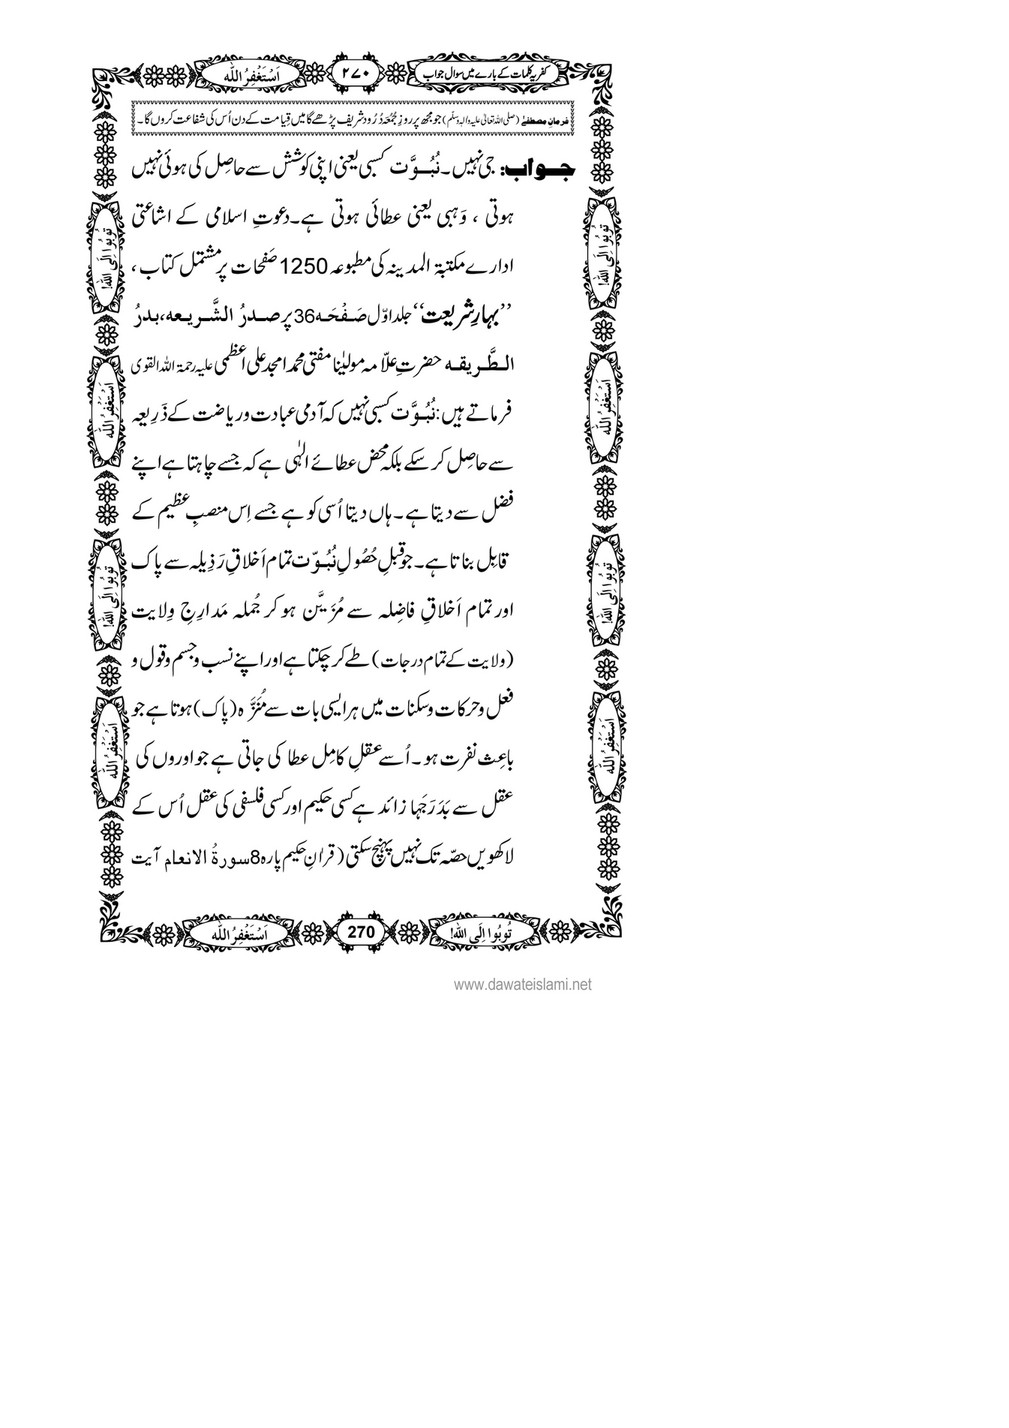 کفریہ کلمات کے بارے میں سوال جواب
۲۷۰
اَسْتَغْفِرُ اللہ
فرمانِ مصطفٰے (صلی اللہ تعالیٰ علیہ والہ وسلم) جو مجھ پر روزِ جُمُعہ دُرُود شریف پڑھے گا میں قِیامت کے دن اُس کی شفاعت کروں گا۔
جواب: جی نہیں۔ نُبُوَّت کسبی یعنی اپنی کوشش سے حاصِل کی ہوئی نہیں
ہوتی ، وَہبی یعنی عطائی ہوتی ہے۔ دعوتِ اسلامی کے اشاعتی
ادارے مکتبۃ المدینہ کی مطبوعہ 1250 صَفحات پر مشتمل کتاب ،
’’بہارِ شریعت‘‘ جلد اوّل صَفْحَہ 36 پر صدرُ الشَّریعہ، بدرُ
الطَّریقہ حضرتِ علّامہ مولیٰنا مفتی محمد امجد علی اعظمی علیہ رحمۃ اللہ القوی
فرماتے ہیں: نُبُوَّت کسبی نہیں کہ آدمی عبادت و ریاضت کے ذَرِیعہ
سے حاصِل کر سکے بلکہ محض عطائے الٰہی ہے کہ جسے چاہتا ہے اپنے
فضل سے دیتا ہے۔ ہاں دیتا اُسی کو ہے جسے اِس منصبِ عظیم کے
قابِل بناتا ہے۔ جو قبلِ حُصُولِ نُبُوّت تمام اَخلاقِ رَذِیلہ سے پاک
اور تمام اَخلاقِ فاضِلہ سے مُزَیَّن ہو کر جُملہ مَدارِجِ وِلایت
(ولایت کے تمام درجات) طے کر چکتا ہے اور اپنے نسب و جسم و قول و
فعل و حرکات و سکنات میں ہر ایسی بات سے مُنَزَّہ (پاک) ہوتا ہے جو
باعِث نفرت ہو۔ اُسے عقلِ کامِل عطا کی جاتی ہے جو اوروں کی
عقل سے بَدَرَجَہا زائد ہے کسی حکیم اور کسی فلسفی کی عقل اُس کے
لاکھویں حصّہ تک نہیں پہنچ سکتی (قرانِ حکیم پارہ 8 سورۃُ الانعام آیت
تُوبُوا اِلَی اللہ!
اَسْتَغْفِرُ اللہ
تُوبُوا اِلَی اللہ!
اَسْتَغْفِرُ اللہ
تُوبُوا اِلَی اللہ!
اَسْتَغْفِرُ اللہ
تُوبُوا اِلَی اللہ!
اَسْتَغْفِرُ اللہ
تُوبُوا اِلَی اللہ!
270
اَسْتَغْفِرُ اللہ
www.dawateislami.net